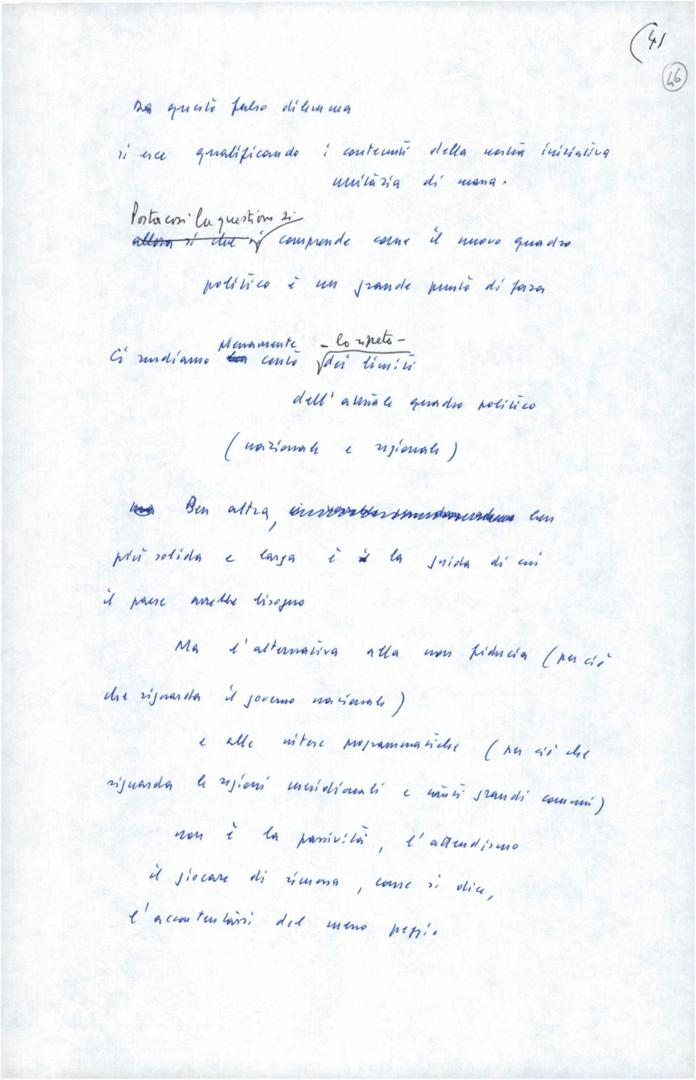 (41
46
Da questo falso dilemma
si esce qualificando i contenuti della nostra iniziativa
unitaria di massa.
Posta così la questione si
allora sì che si comprende come il nuovo quadro
politico è un grande punto di forza
pienamente - lo ripeto -
Ci rendiamo ben conto dei limiti
dell'attuale quadro politico
(nazionale e regionale)
ma Ben altra, ben
più solida e larga è la guida di cui
il paese avrebbe bisogno
Ma l'alternativa alla non fiducia (per ciò
che riguarda il governo nazionale)
e alle intese programmatiche (per ciò che
riguarda le regioni meridionali e tanti grandi comuni)
non è la passività, l'attendismo
il giocare di rimessa, come si dice,
l'accontentarsi del meno peggio.